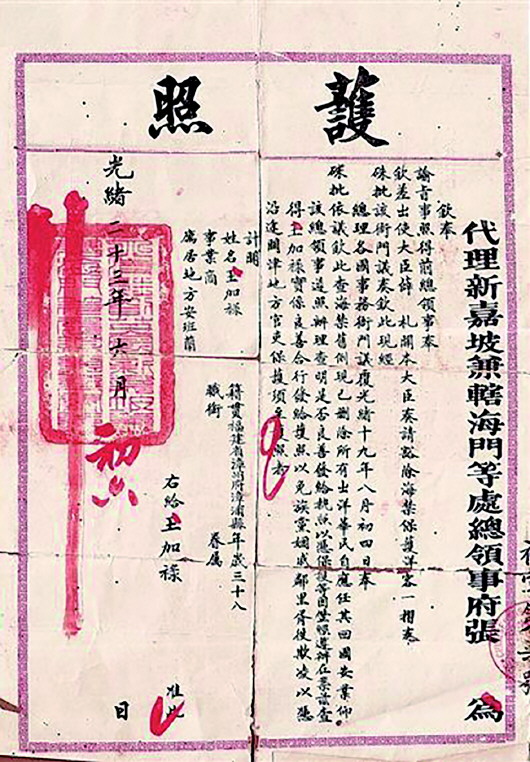 護照
代理新嘉坡兼轄海門等處總領事府張 為
欽奉
諭旨事照得前總領事奉
欽差出使大臣薛 札開本大臣奏請豁除海禁保護洋客一摺奉
硃批該衙門議奏欽此現經
總理各國事務衙門議覆光緒十九年八月初四日奉
硃批依議欽此查海禁舊例現已刪除所有出洋華民自應任其回國安業仰
該總領事遵照辦理查明是否良善發給執照以憑保護等因 遵辦在案茲查
得王加祿實係良善合行發給護照以免族黨姻戚鄰里胥役欺凌以憑
沿途關津地方官吏保護須至護照者
計開
姓名王加祿 籍貫福建省漳州府漳浦縣年歲三十八
事業商 職銜 眷屬
寓居地方安班蘭
右給王加祿 准此
光緒二十三年六月初六日